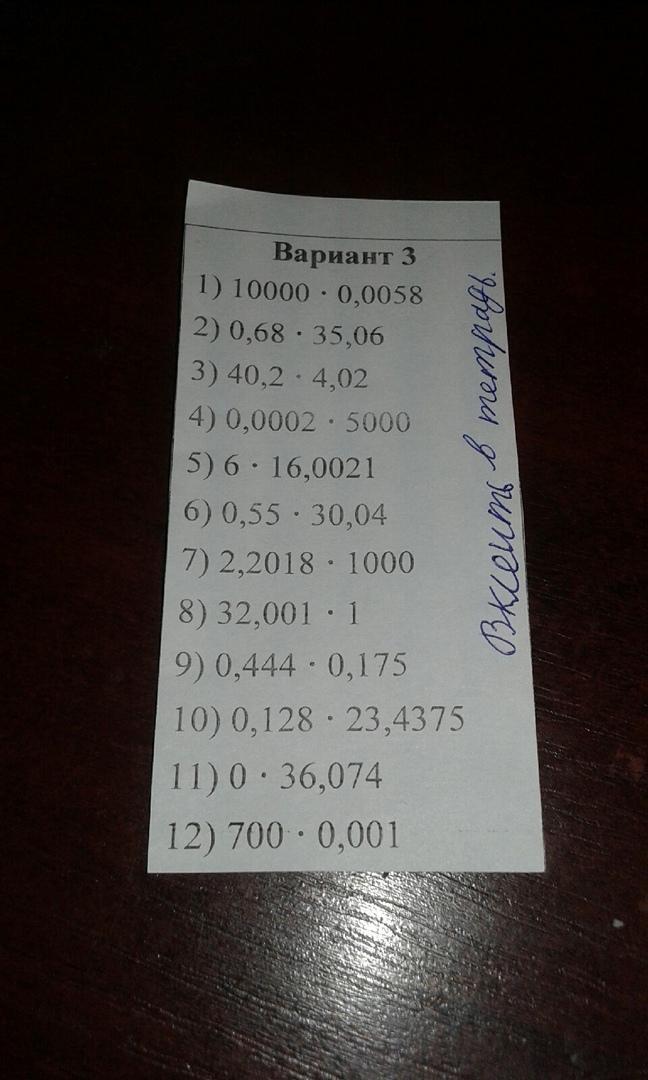 Вариант 3
1) 10000 · 0,0058
2) 0,68 · 35,06
3) 40,2 · 4,02
4) 0,0002 · 5000
5) 6 · 16,0021
6) 0,55 · 30,04
7) 2,2018 · 1000
8) 32,001 · 1
9) 0,444 · 0,175
10) 0,128 · 23,4375
11) 0 · 36,074
12) 700 · 0,001
Вклеить в тетрадь.